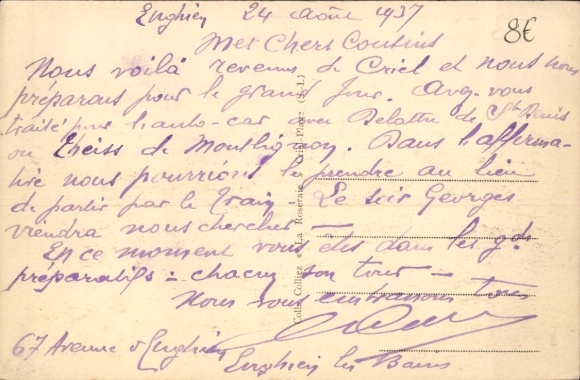 Enghien 24 août 1937
8€
Mes Chers Cousins
Nous voilà revenus de Criel et nous nous
préparons pour le grand jour. Avez vous
traité pour l'auto-car avec Delattre de St Denis
ou Theiss de Montlignon. Dans l'afferma-
tive nous pourrions le prendre au lieu
de partir par le train - Le soir Georges
viendra nous chercher -
En ce moment vous êtes dans les gds
préparatifs = chacun son tour -
Nous vous embrassons tous
67 Avenue d'Enghien
Enghien les Bains
Coll. Colliez « La Roseraie » Criel-Plage (S.-I.)